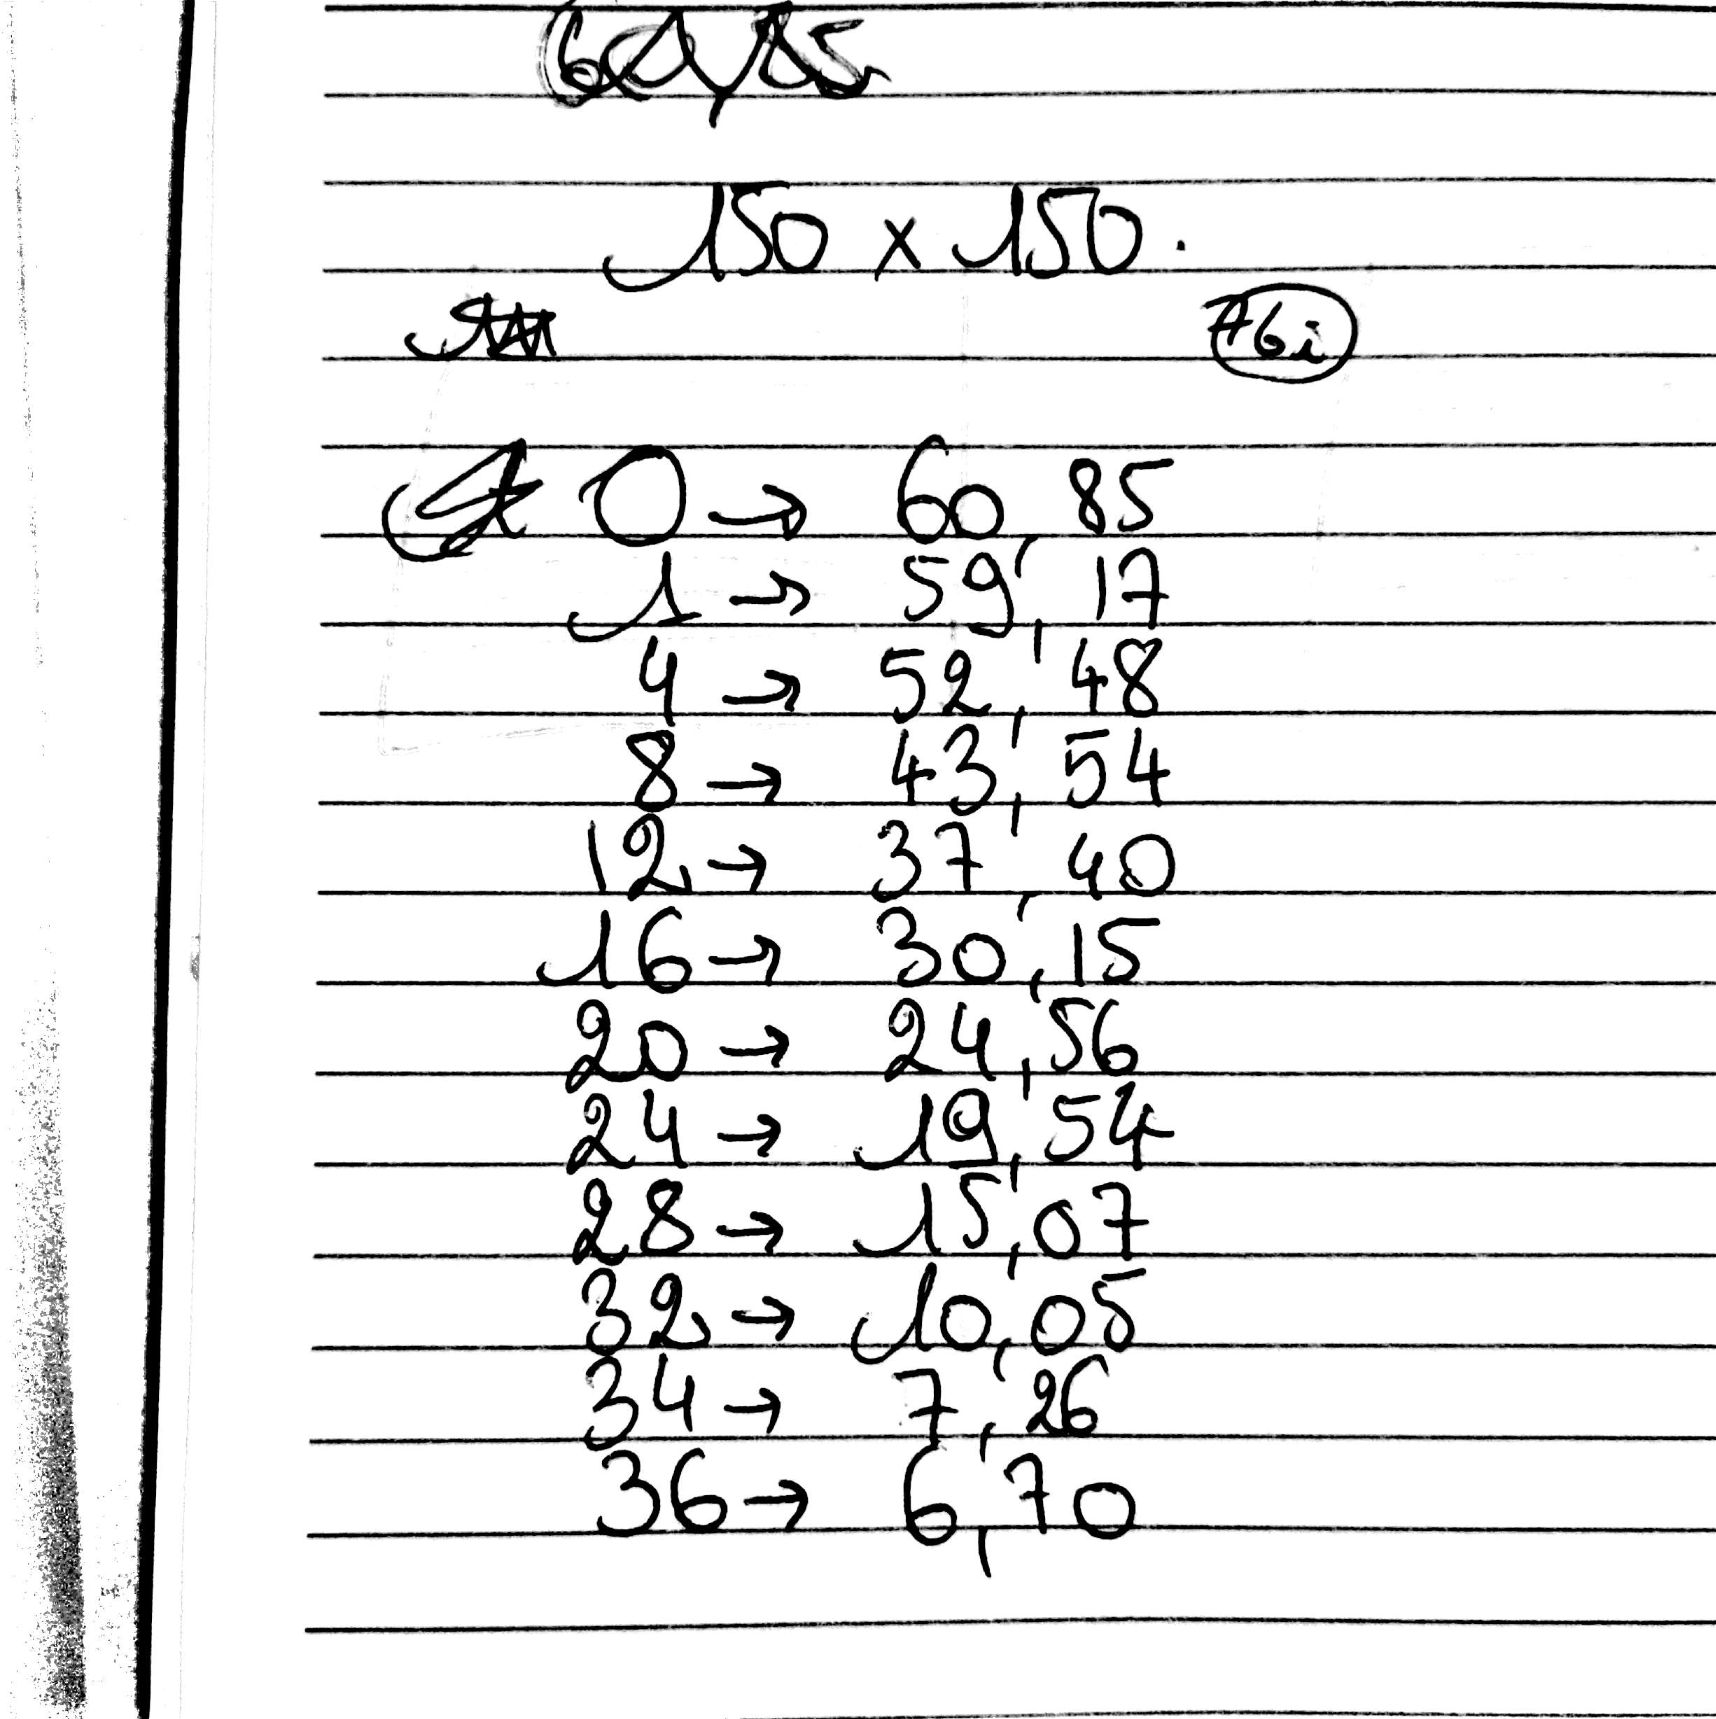 150 x 150.
Abi
0 → 60,85
1 → 59,17
4 → 52,48
8 → 43,54
12 → 37,40
16 → 30,15
20 → 24,56
24 → 19,54
28 → 15,07
32 → 10,05
34 → 7,26
36 → 6,70